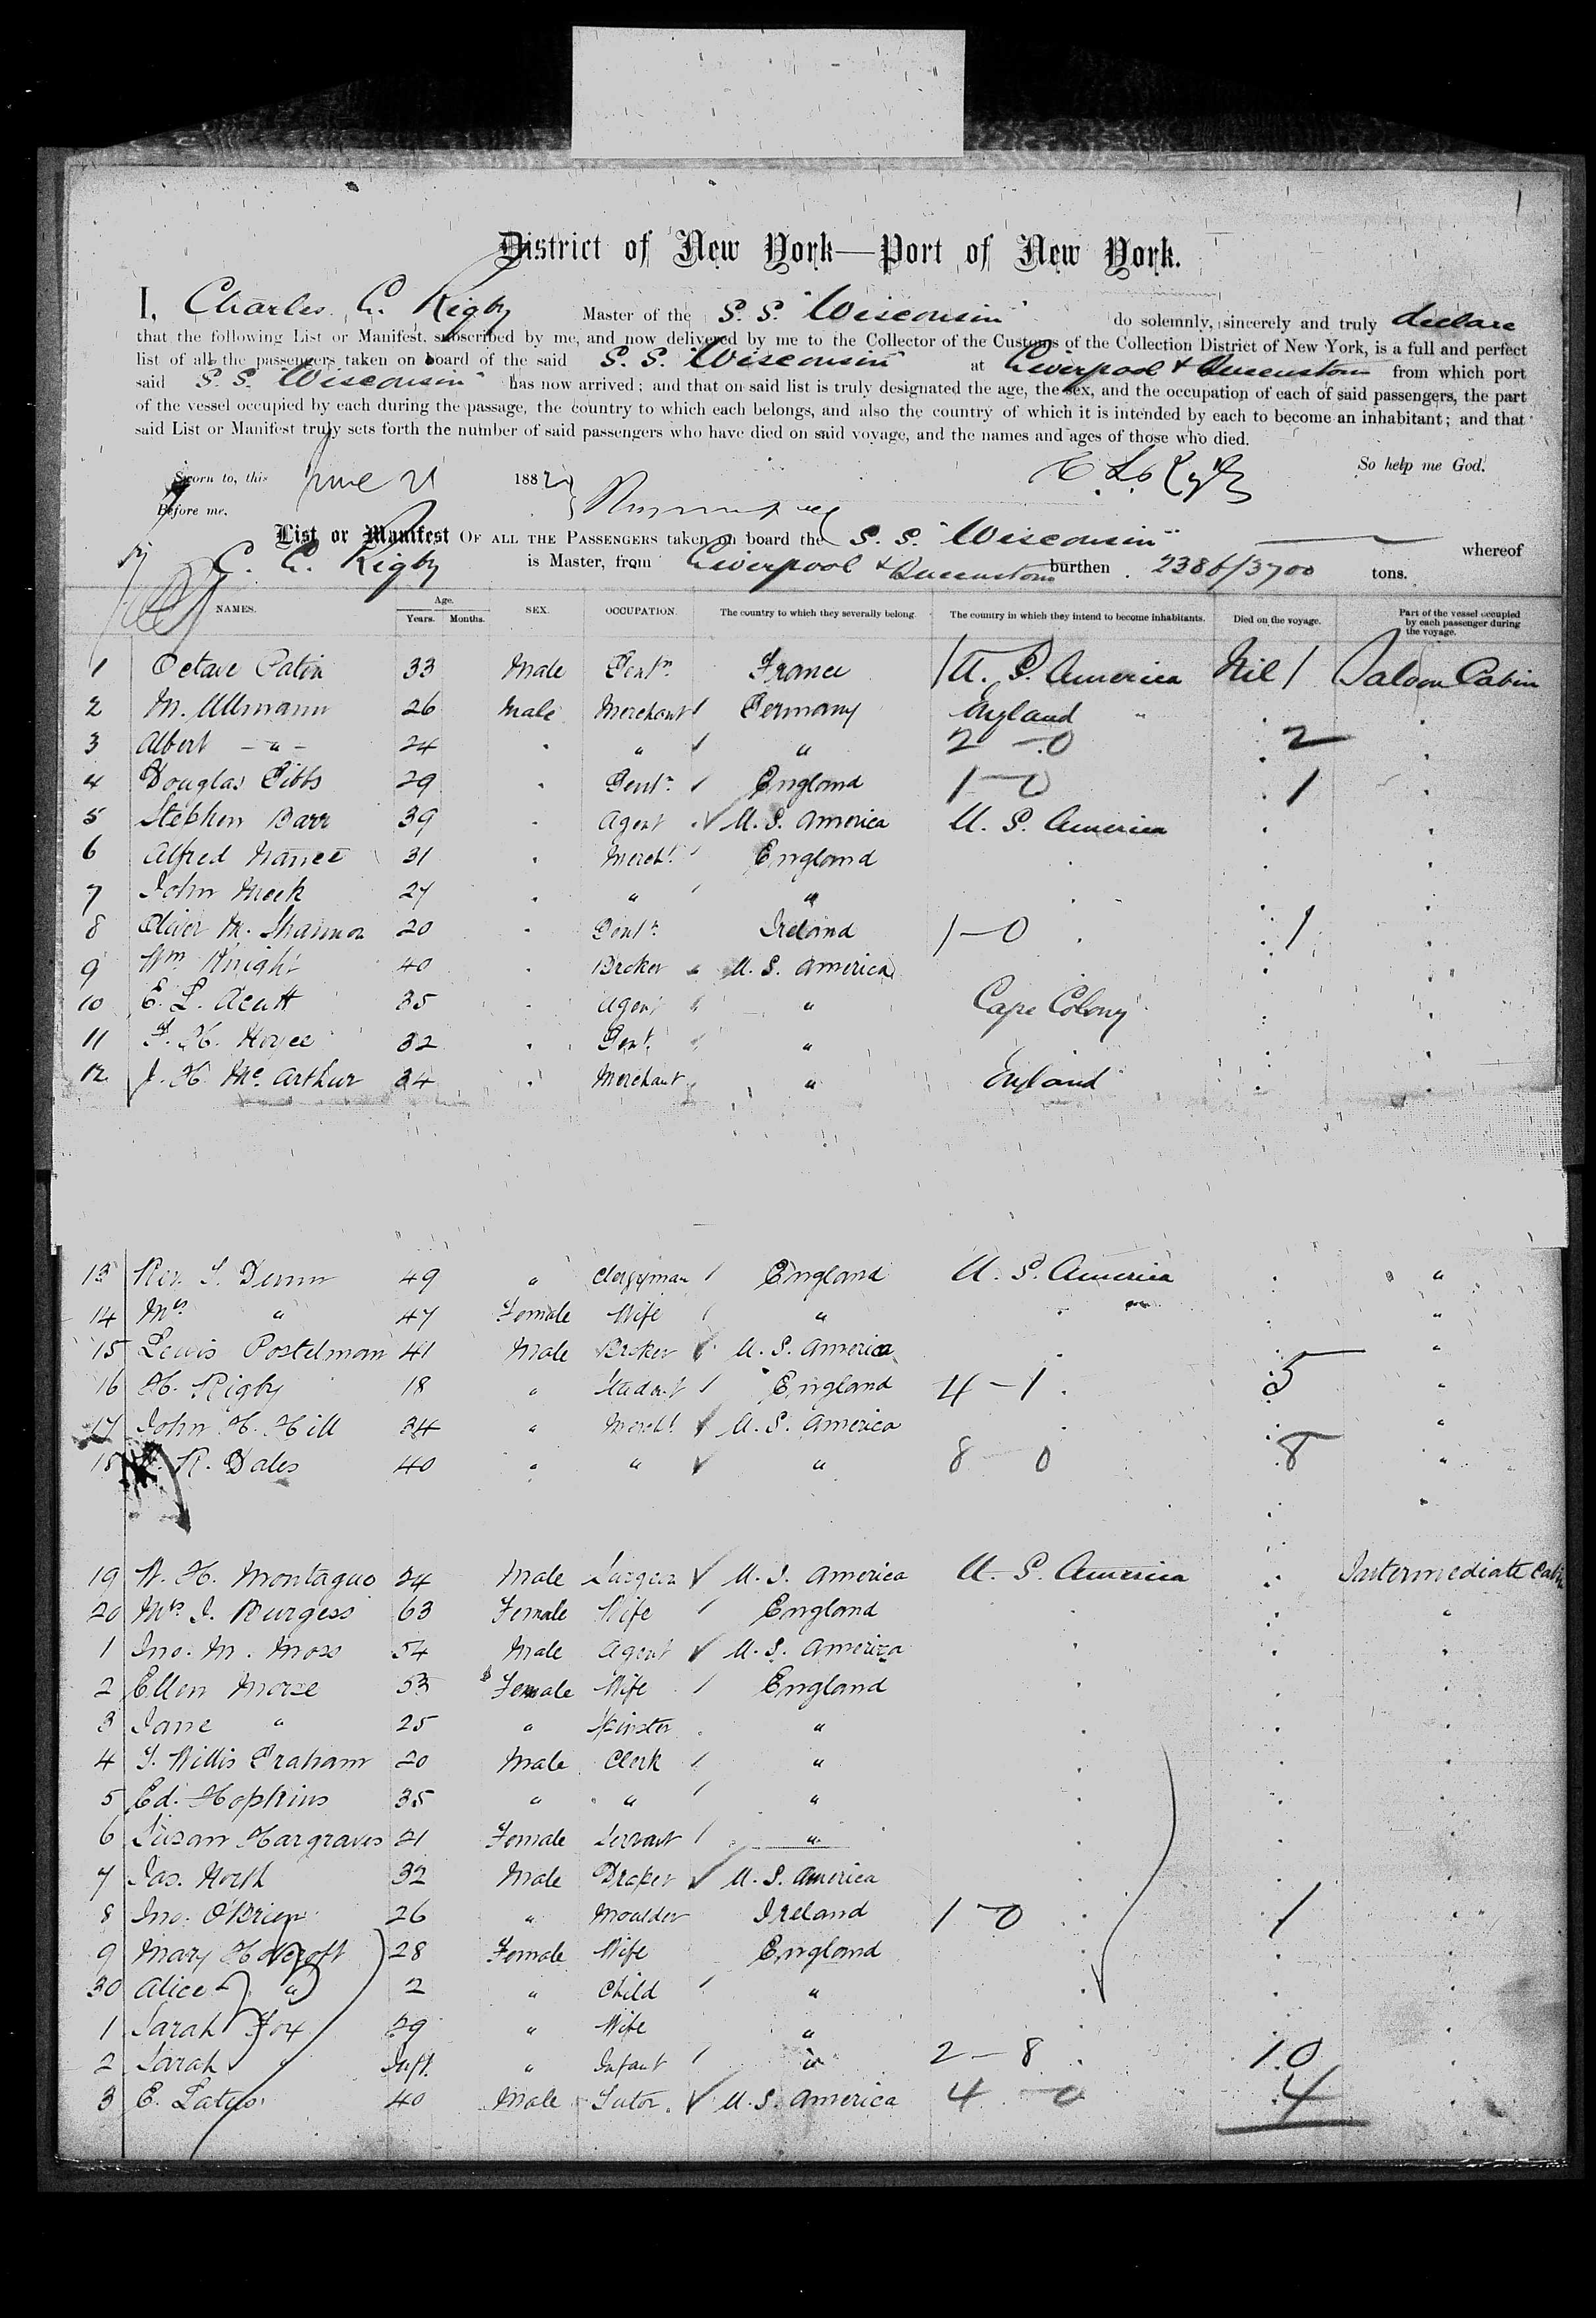 1
District of New York—Port of New York.
I, Charles L. Rigby Master of the S. S. "Wisconsin" do solemnly, sincerely and truly declare
that the following List or Manifest, subscribed by me, and now delivered by me to the Collector of the Customs of the Collection District of New York, is a full and perfect
list of all the passengers taken on board of the said S. S. "Wisconsin" at Liverpool & Queenstown from which port
said S. S. "Wisconsin" has now arrived; and that on said list is truly designated the age, the sex, and the occupation of each of said passengers, the part
of the vessel occupied by each during the passage, the country to which each belongs, and also the country of which it is intended by each to become an inhabitant; and that
said List or Manifest truly sets forth the number of said passengers who have died on said voyage, and the names and ages of those who died.
So help me God.
Sworn to, this June 21 1882
C. L. Rigby
Before me.
List or Manifest OF ALL THE PASSENGERS taken on board the S. S. "Wisconsin" whereof
C. L. Rigby is Master, from Liverpool & Queenstown burthen 2386/3700 tons.
NAMES. Age. Years. Months. SEX. OCCUPATION. The country to which they severally belong. The country in which they intend to become inhabitants. Died on the voyage. Part of the vessel occupied by each passenger during the voyage.
1 Octave Patin 33 Male Gentn. France U. S. America Nil Saloon Cabin
2 M. Ullmann 26 Male Merchant Germany England "
3 Albert - " - 24 " " " 2 - 0 2
4 Douglas Gibbs 29 " Gentn. England 1 - 0 1
5 Stephen Barr 39 " Agent U. S. America U. S. America
6 Alfred Nance 31 " Mercht. England
7 John Meek 27 " " "
8 Oliver M. Shannon 20 " Gentn. Ireland 1 - 0 1
9 Wm. Knight 40 " Broker U. S. America
10 E. L. Acutt 35 " Agent " Cape Colony
11 F. H. 32 " Gent. "
12 J. H. Mc. Arthur 34 " Merchant " England
13 Rev. T. Dunn 49 " Clergyman England U. S. America "
14 Mrs. " 47 Female Wife " "
15 Lewis Postelman 41 Male Broker U. S. America "
16 H. Rigby 18 " Student England 4 - 1 5 "
17 John H. Hill 34 " Mercht. U. S. America "
18 R. Dales 40 " " " 8 0 8 "
19 W. H. Montague 24 Male Surgeon U. S. America U. S. America Intermediate Cabin
20 Mrs. J. Burgess 63 Female Wife England "
1 Jno. M. Moss 54 Male Agent U. S. America
2 Ellen Morse 53 Female Wife England
3 Jane " 25 " Spinster "
4 T. Willis Graham 20 Male Clerk "
5 Ed. Hopkins 35 " " "
6 Susan Hargraves 21 Female Servant "
7 Jas. North 32 Male Draper U. S. America
8 Jno. O'Brien 26 " Moulder Ireland 1 - 0 1
9 Mary Holcroft 28 Female Wife England
30 Alice " 2 " Child "
1 Sarah Fox 29 " Wife "
2 Sarah " Inft. " Infant " 2 - 8 10
3 E. 40 Male Tutor U. S. America 4 - 0 4